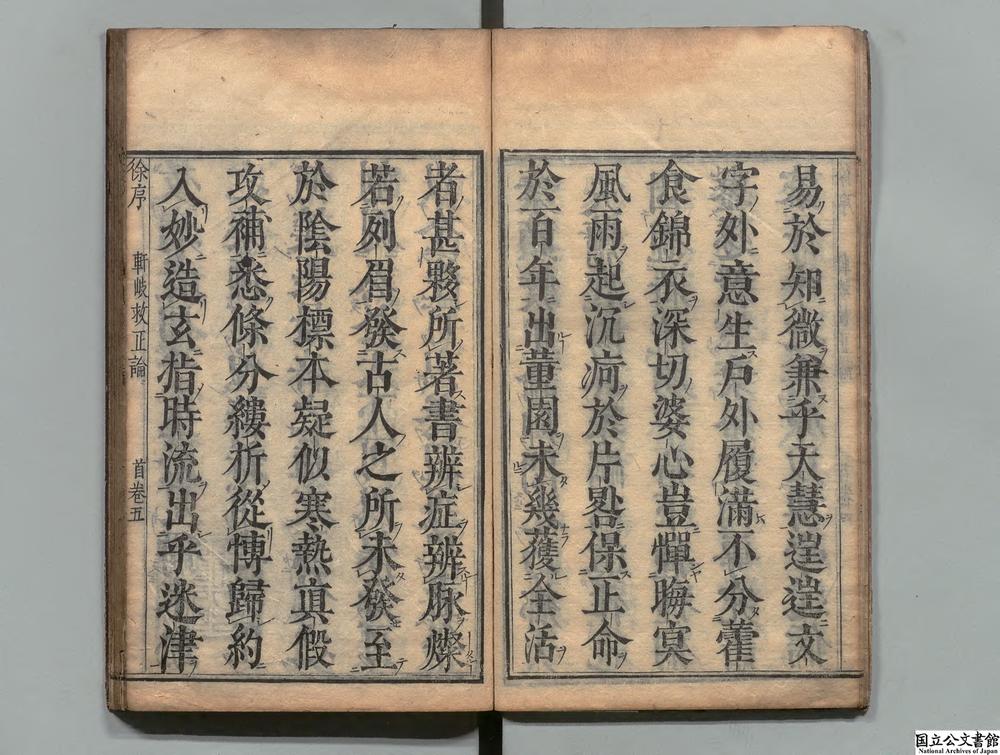 易於知微兼乎大慧逞逞文
字外意生戸外履滿不分藿
食錦衣深切婆心豈憚晦冥
風雨起沉疴於片晷保正命
於百年出董園未幾獲全活
者甚夥所著書辨症辨脉燦
若列眉發古人之所未發至
於陰陽標本疑似寒熱眞假
攻補悉條分縷析從愽歸約
入妙造玄指時流出乎迷津
徐序 軒岐救正論 首卷五
国立公文書館
National Archives of Japan